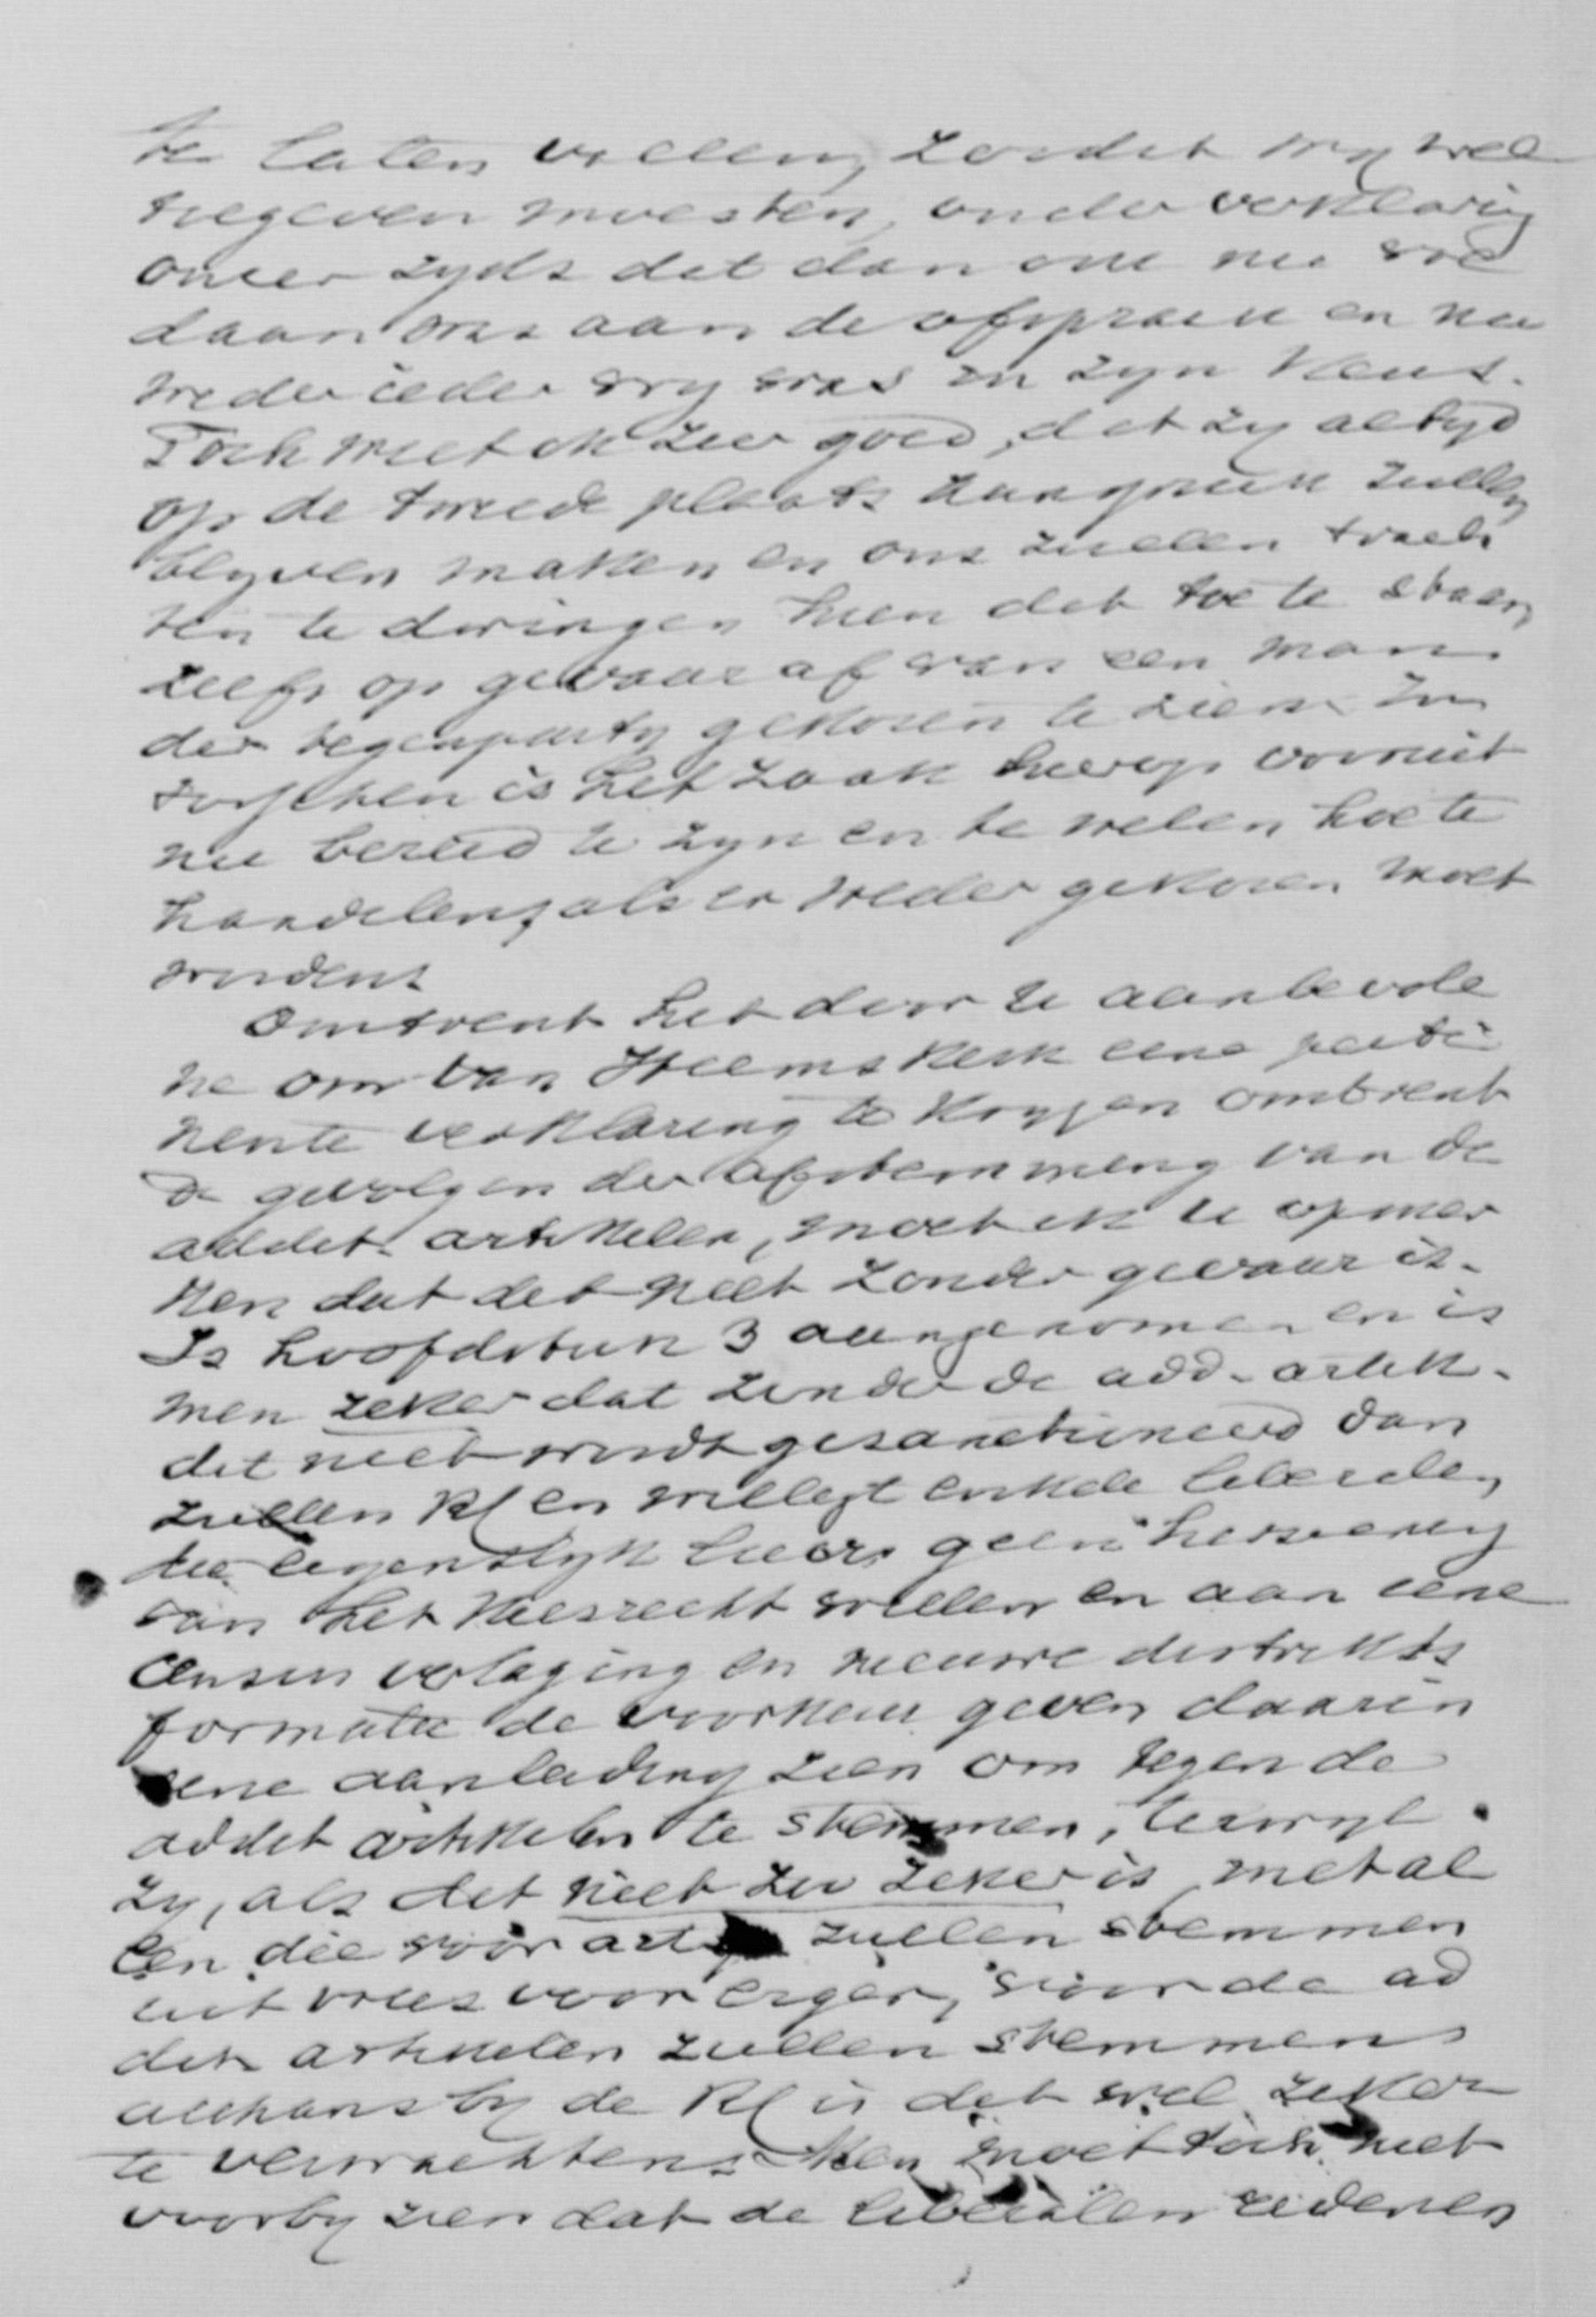 te laten vallen, zoodat wy wel
toegeven moesten, onder verklaring
onzer zyds dat dan ook nu vol
daan was aan de afspraak en nu
weder ieder vry was in zyn keus.
Toch weet ik zeer goed, dat zy altyd
op de tweede plaats aanspraak zullen
blyven maken en ons zullen trach
ten te dwingen hun dat toe te staan,
zelfs op gevaar af van een man
der tegenparty gekozen te zien. In
tusschen is het zaak hierop vooruit
nu bereid te zyn en te weten hoe te
handelen, als er weder gekozen moet
worden.
Omtrent het door U aanbevole
ne om van Heemskerk eene perti
nente verklaring te krygen omtrent
de gevolgen der afstemming van de
addit. artikelen, moet ik U opmer
ken dat dat niet zonder gevaar is.
Is hoofdstuk 3 aangenomen en is
men zeker dat zonder de add. artik.
dit niet wordt gesanctioneerd dan
zullen Kl en wellegt enkele liberalen,
die eigenlyk liever geen herziening
van het kiesrecht willen en aan eene
census verlaging en nieuwe distrikts
formatie de voorkeur geven daarin
eene aanleiding zien om tegen de
addit artikelen te stemmen, terwyl
zy, als dat niet zoo zeker is, met al
len die vóór art zullen stemmen
uit vrees voor erger, vóór de ad
dit artikelen zullen stemmen
althans by de Kl is dat wel zeker
te verwachten. Men moet toch niet
voorby zien dat de liberalen redenen